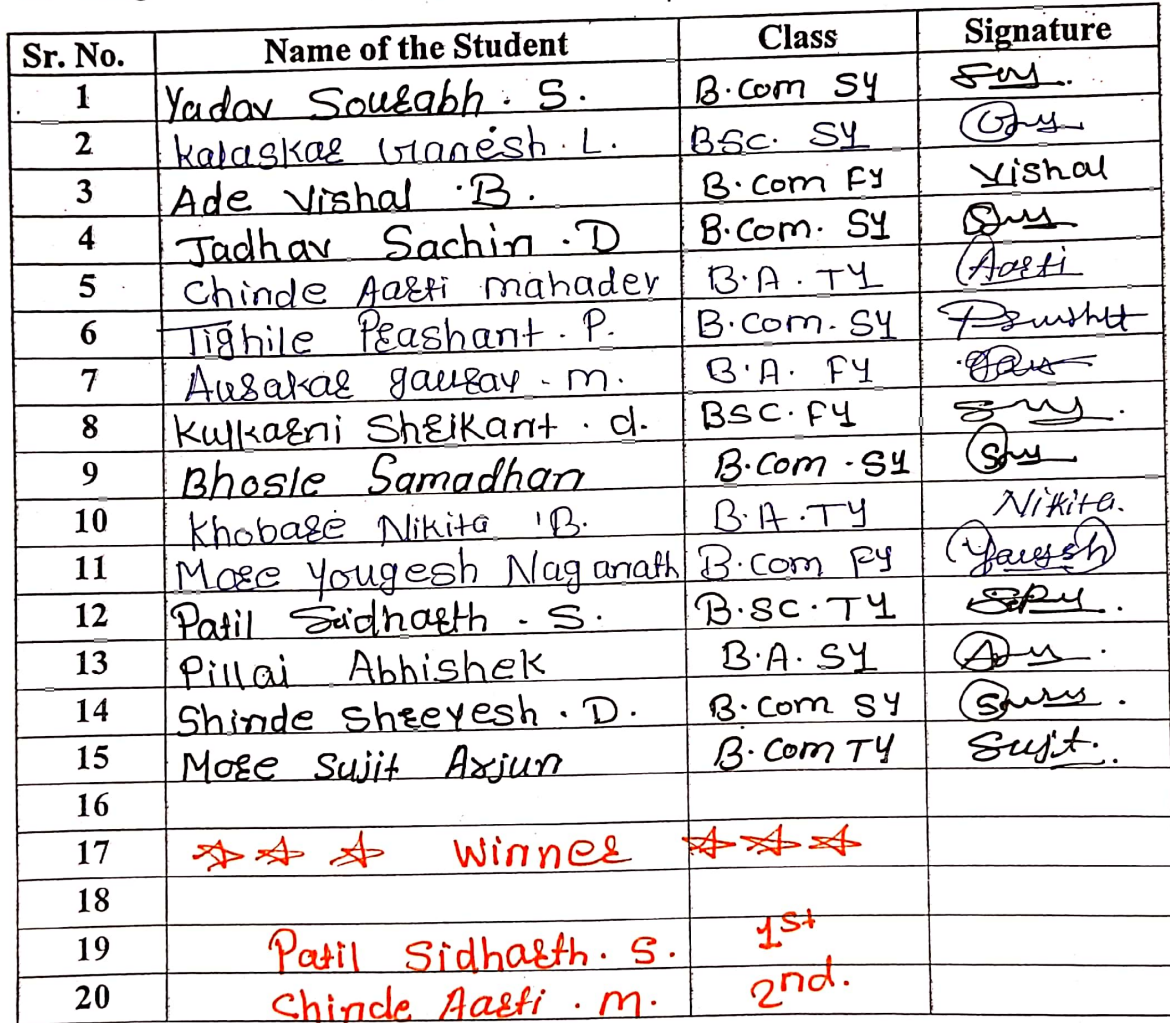 Sr. No. Name of the Student Class Signature
1 Yadav Sourabh . S. B.com SY
2 Kalaskar Ganesh . L. BSC. SY
3 Ade Vishal .B. B.com FY Vishal
4 Jadhav Sachin .D B.com. SY
5 Chinde Aarti mahadev B.A. TY Aarti
6 Tighile Prashant . P. B.com. SY
7 Ausakar gaurav . m. B.A. FY
8 Kulkarni Shrikant . d. BSC. FY
9 Bhosle Samadhan B.com . SY
10 Khobare Nikita B. B.A .TY Nikita.
11 More Yougesh Naganath B.com FY
12 Patil Sidharth . S. B.SC.TY
13 Pillai Abhishek B.A. SY
14 Shinde Shreeyesh . D. B.com SY
15 More Sujit Arjun B.com TY Sujit.
16
17 Winner
18
19 Patil Sidharth. S. 1st
20 Chinde Aarti . m. 2nd.